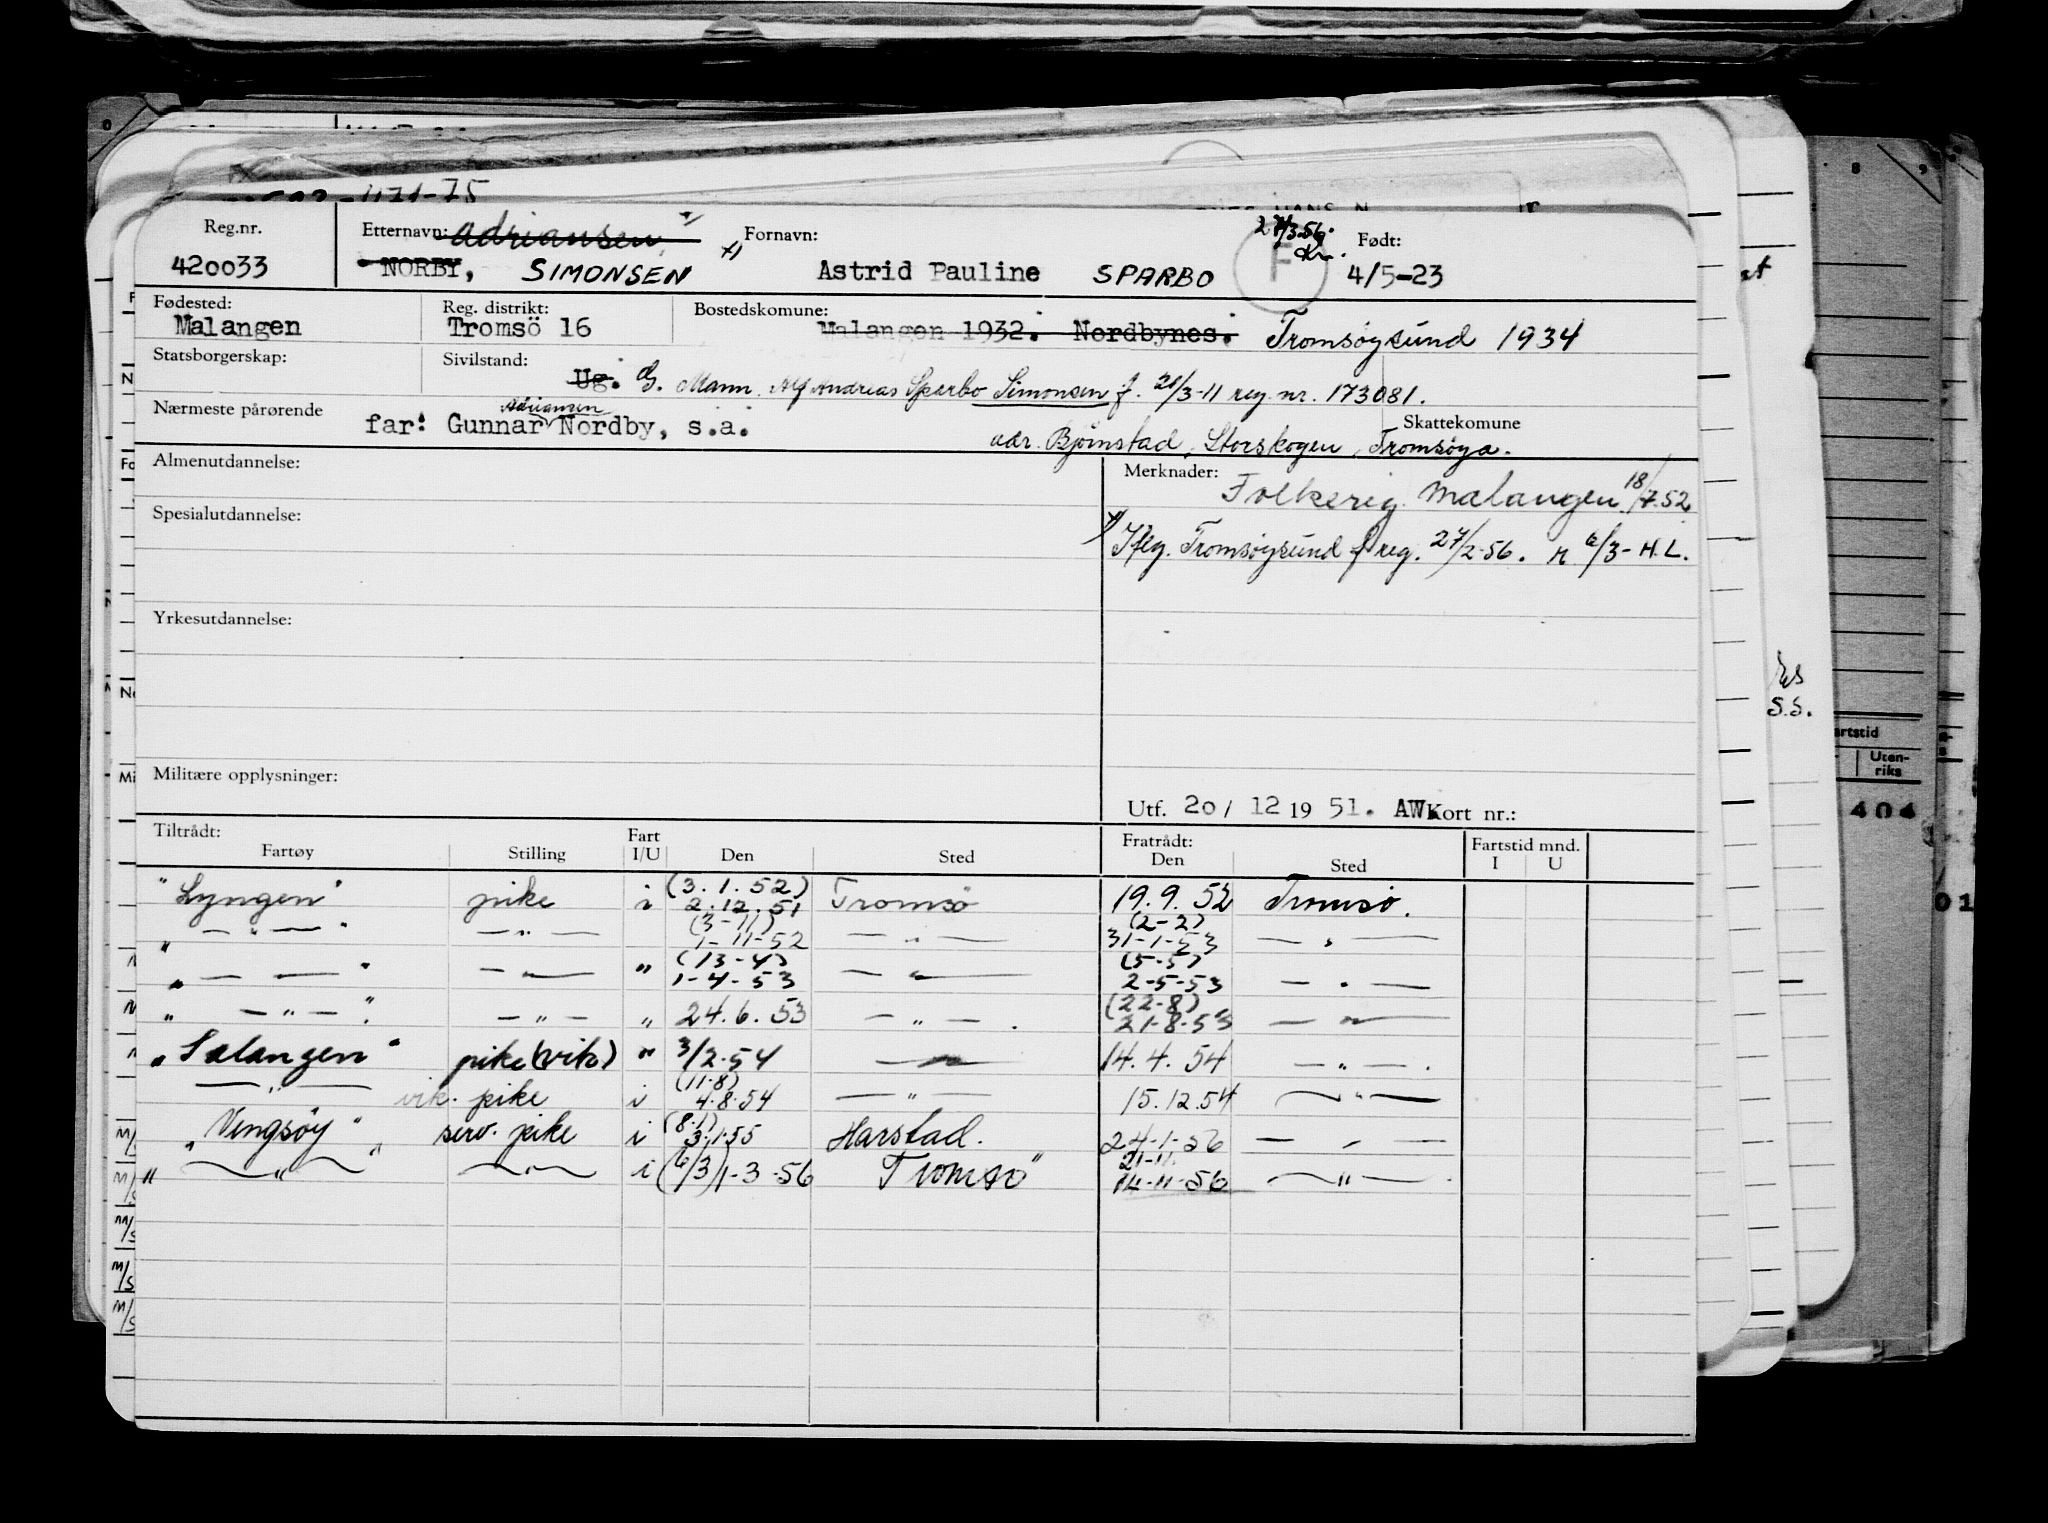 1171-75
Reg.nr. Etternavn: adriansen Fornavn: 27/3 56. Kr. F Født:
420033 NORBY, SIMONSEN x) Astrid Pauline SPARBO 4/5-23
Fødested: Reg. distrikt: Bostedskomune:
Malangen Tromsö 16 Malangen 1932. Nordbynes. Tromsøysund 1934
Statsborgerskap: Sivilstand:
Ug. G. Mann. Alf Andreas Sparbo Simonsen f. 21/3-11 reg. nr. 173081.
Nærmeste pårørende Adriansen Skattekomune
far: Gunnar Nordby, s.a. adr. Bjørnstad, Storskogen, Tromsøya.
Almenutdannelse: Merknader:
Folkereg. Malangen 18/7.52
Spesialutdannelse:
x) Iflg. Tromsøysund f reg. 27/2-56. n 6/3- H.L.
Yrkesutdannelse:
Militære opplysninger:
Utf. 20/ 12 19 51. AW Kort nr.:
Tiltrådt: Fart Fratrådt: Fartstid mnd.
Fartøy Stilling I/U Den Sted Den Sted I U
"Lyngen" pike i (3.1.52) 2.12.51 Tromsö 19.9.52 Tromsø.
" — " — " — " — (3-11) 1-11-52 — " — (2-2) 31-1-53 — " —
" — " — " — " " (13-4) 1-4-53 — " — (5-5) 2-5-53 — " —
" — " — " — " — " 24.6.53 — " — . (22-8) 21-8-53 — " —
"Salangen" pike (vik) " 3/2-54 — " — 14.4.54 — " — .
— " — vik. pike i (11-8) 4.8.54 — " — 15.12.54 — " —
"Vengsøy" serv. pike i (8.1) 3.1.55 Harstad. 24-1-56 — " —
" — " — — " — i (6/3) 1-3-56 Tromsø" 21-11. 14-11-56 — " — .
S.S.
artstid
Uten-
riks
404
01